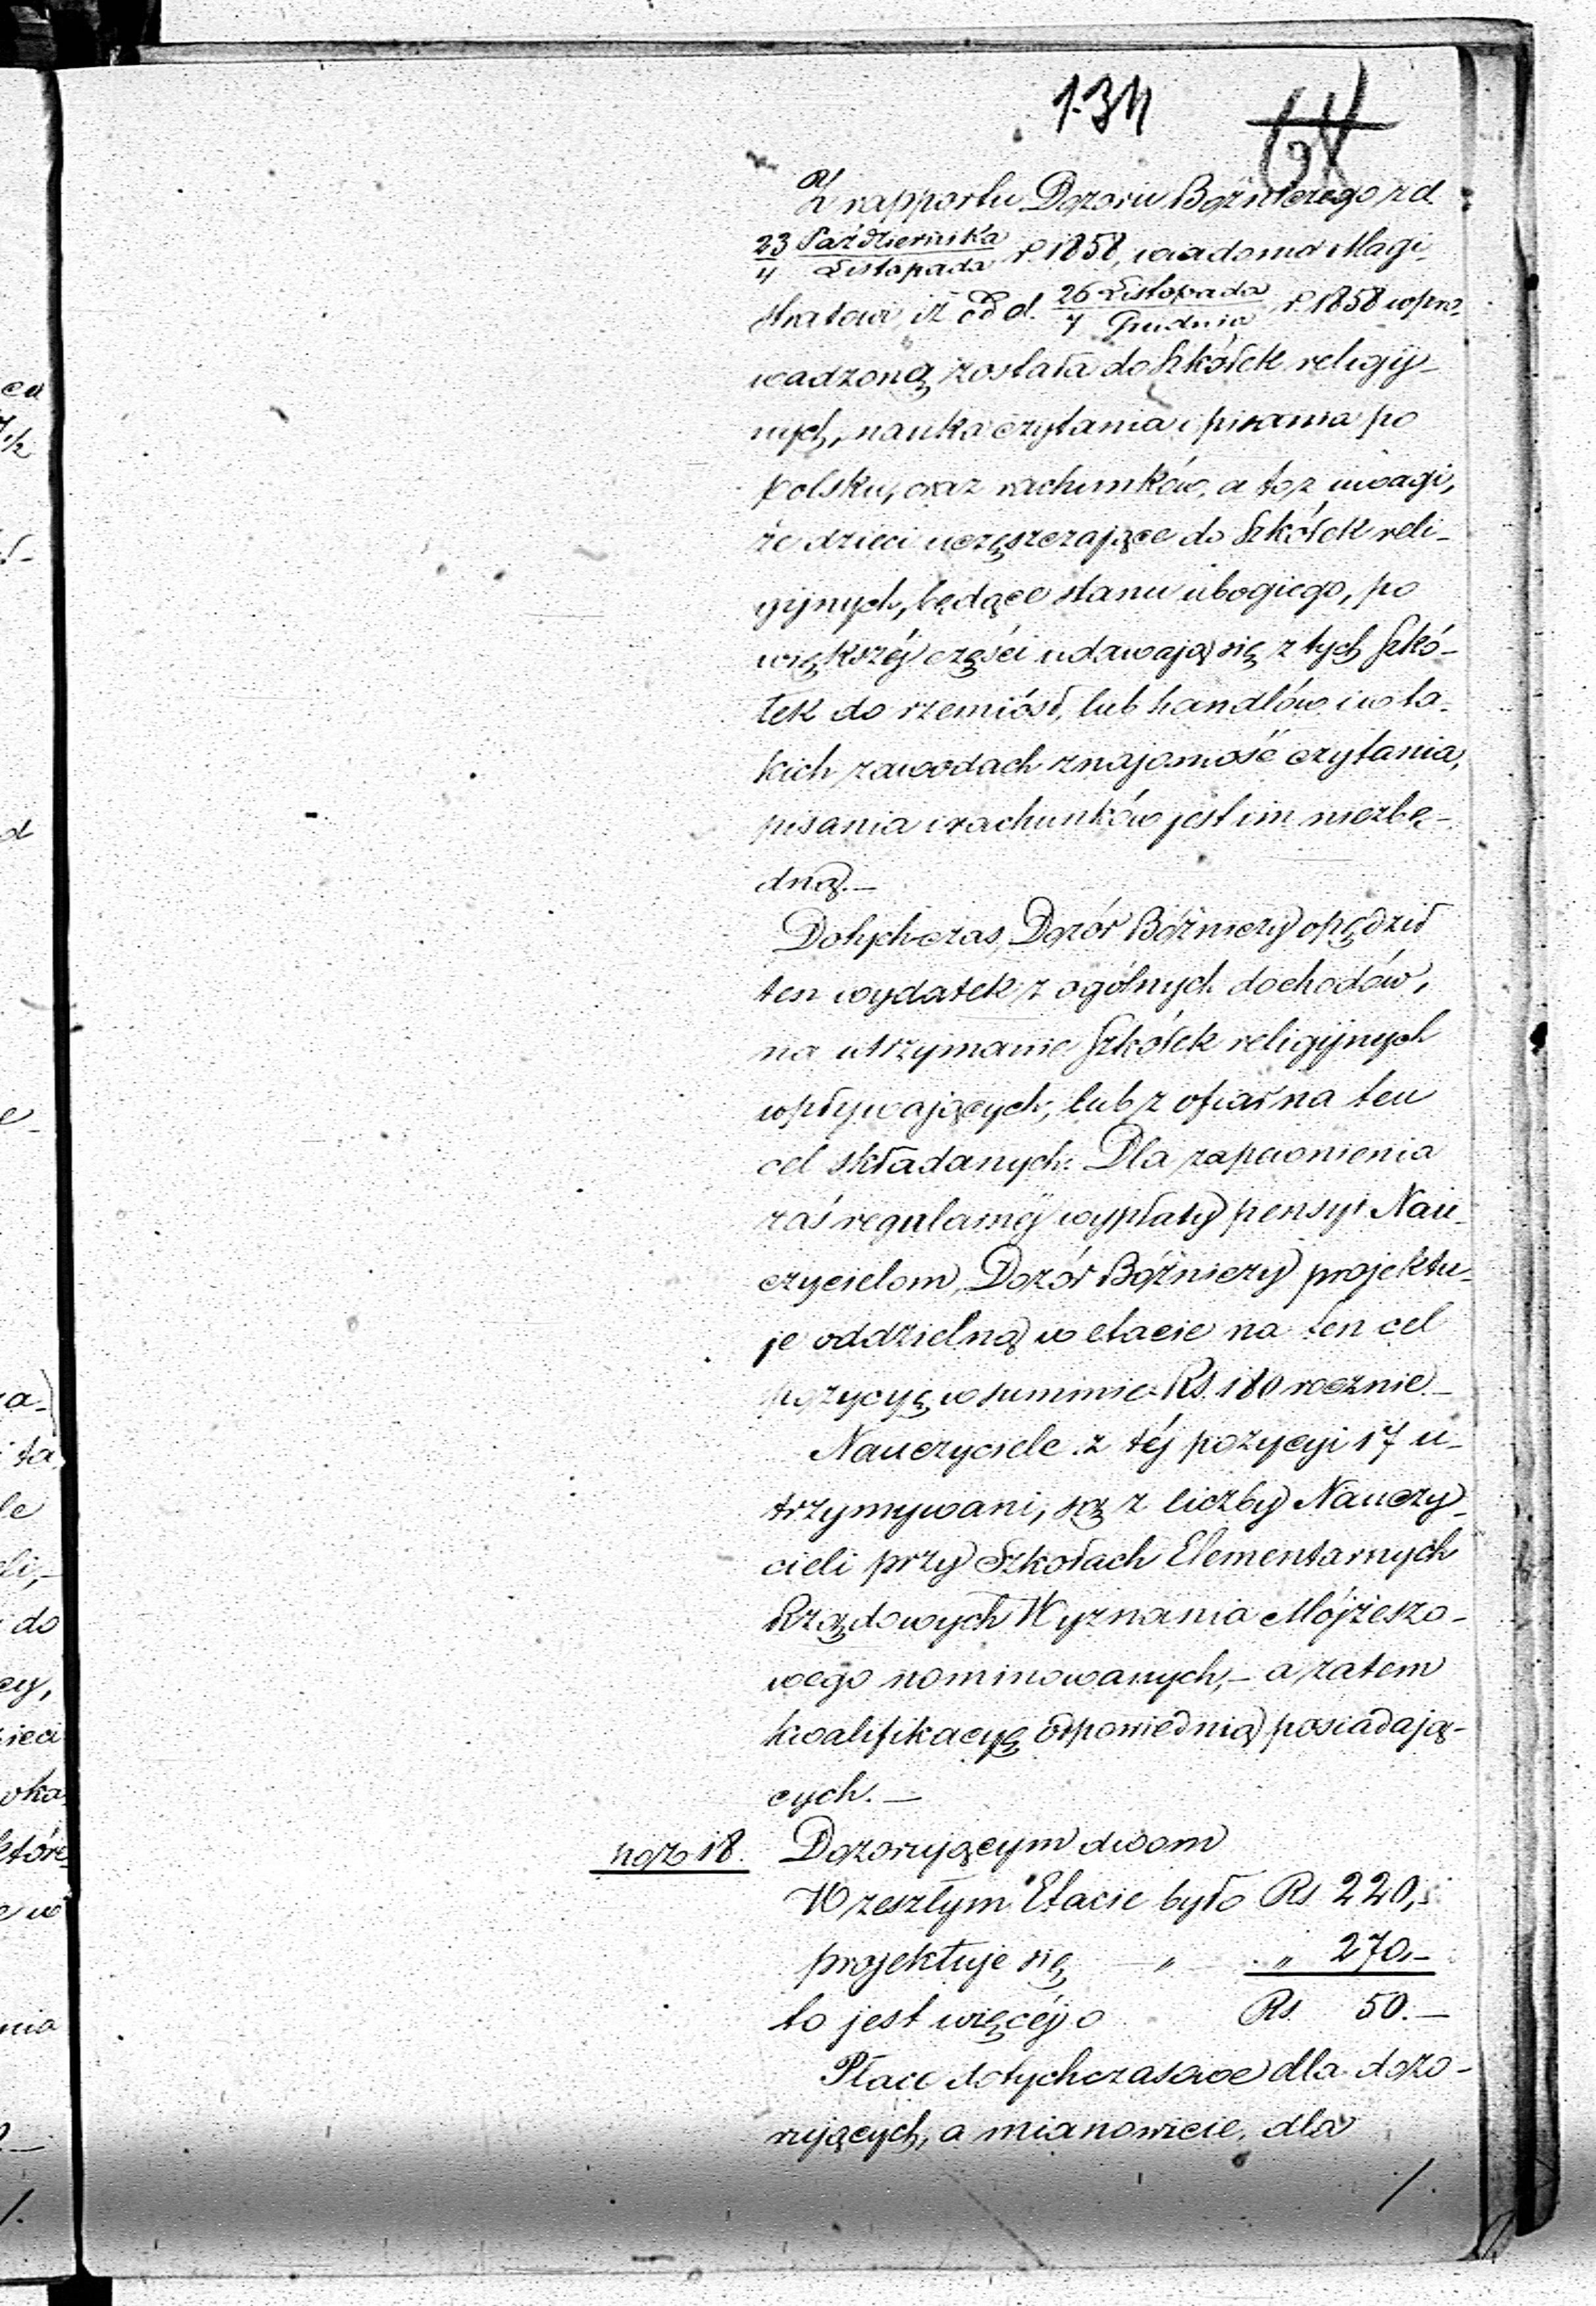 134 64
Z rapportu Dozoru Bóżniczego z d.
23 Października / 4 Listopada r. 1858, wiadomo Magi-
stratowi, iż od d. 26 Listopada / 7 Grudnia r. 1858 wpro-
wadzoną została do Szkółek religij-
nych, nauka czytania i pisania po
polsku, oraz rachunków, a to z uwagi,
że dzieci uczęszczające do Szkółek reli-
gijnych, będące stanu ubogiego, po
większéj części udawają się z tych Szkó-
łek do rzemiósł, lub handlów i w ta-
kich zawodach znajomość czytania,
pisania i rachunków jest im niezbę-
dną.—
Dotychczas, Dozór Bóżniczy opędził
ten wydatek z ogólnych dochodów,
na utrzymanie Szkółek religijnych
wpływających, lub z ofiar na ten
cel składanych. Dla zapewnienia
zaś regularnéj wypłaty pensyi Nau-
czycielom, Dozór Bóżniczy projektu-
je oddzielną w etacie na ten cel
pozycyę w summie Rs. 180 rocznie.—
Nauczyciele z téj pozycyi 17 u-
trzymywani, są z liczby Nauczy-
cieli przy Szkołach Elementarnych
Rządowych Wyznania Mójżeszo-
wego nominowanych,— a zatem
kwalifikacyę odpowiednią posiadają-
cych.—
poz 18. Dozorującym dwom
W zeszłym Etacie było Rs 220,
projektuje się " " 270.—
to jest więcéj o Rs. 50.—
Płace dotychczasowe dla dozo-
rujących, a mianowicie, dla
/.